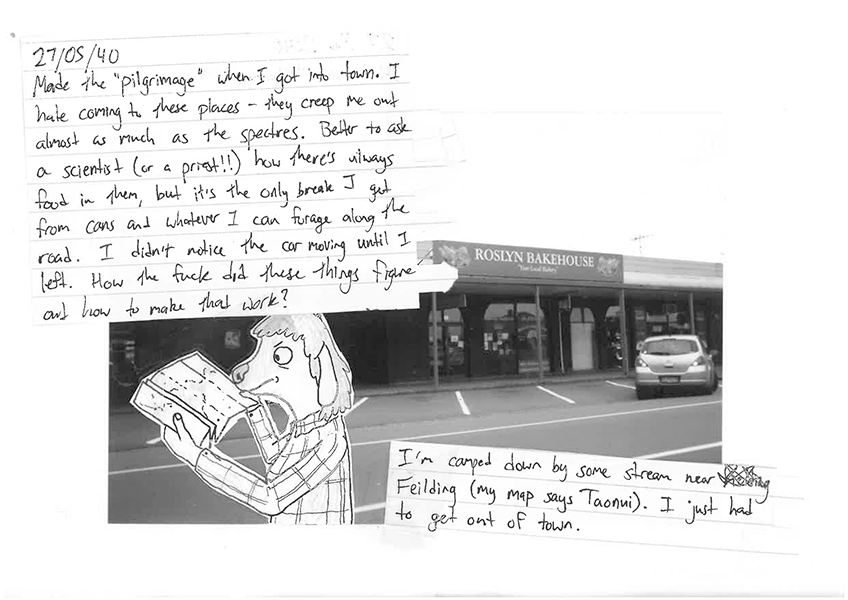 27/05/40
Made the "pilgrimage" when I got into town. I
hate coming to these places - they creep me out
almost as much as the spectres. Better to ask
a scientist (or a priest!!) how there's always
food in them, but it's the only break I get
from cans and whatever I can forage along the
road. I didn't notice the car moving until I
left. How the fuck did these things figure
out how to make that work?
ROSLYN BAKEHOUSE
"Your Local Bakery"
I'm camped down by some stream near
Feilding (my map says Taonui). I just had
to get out of town.